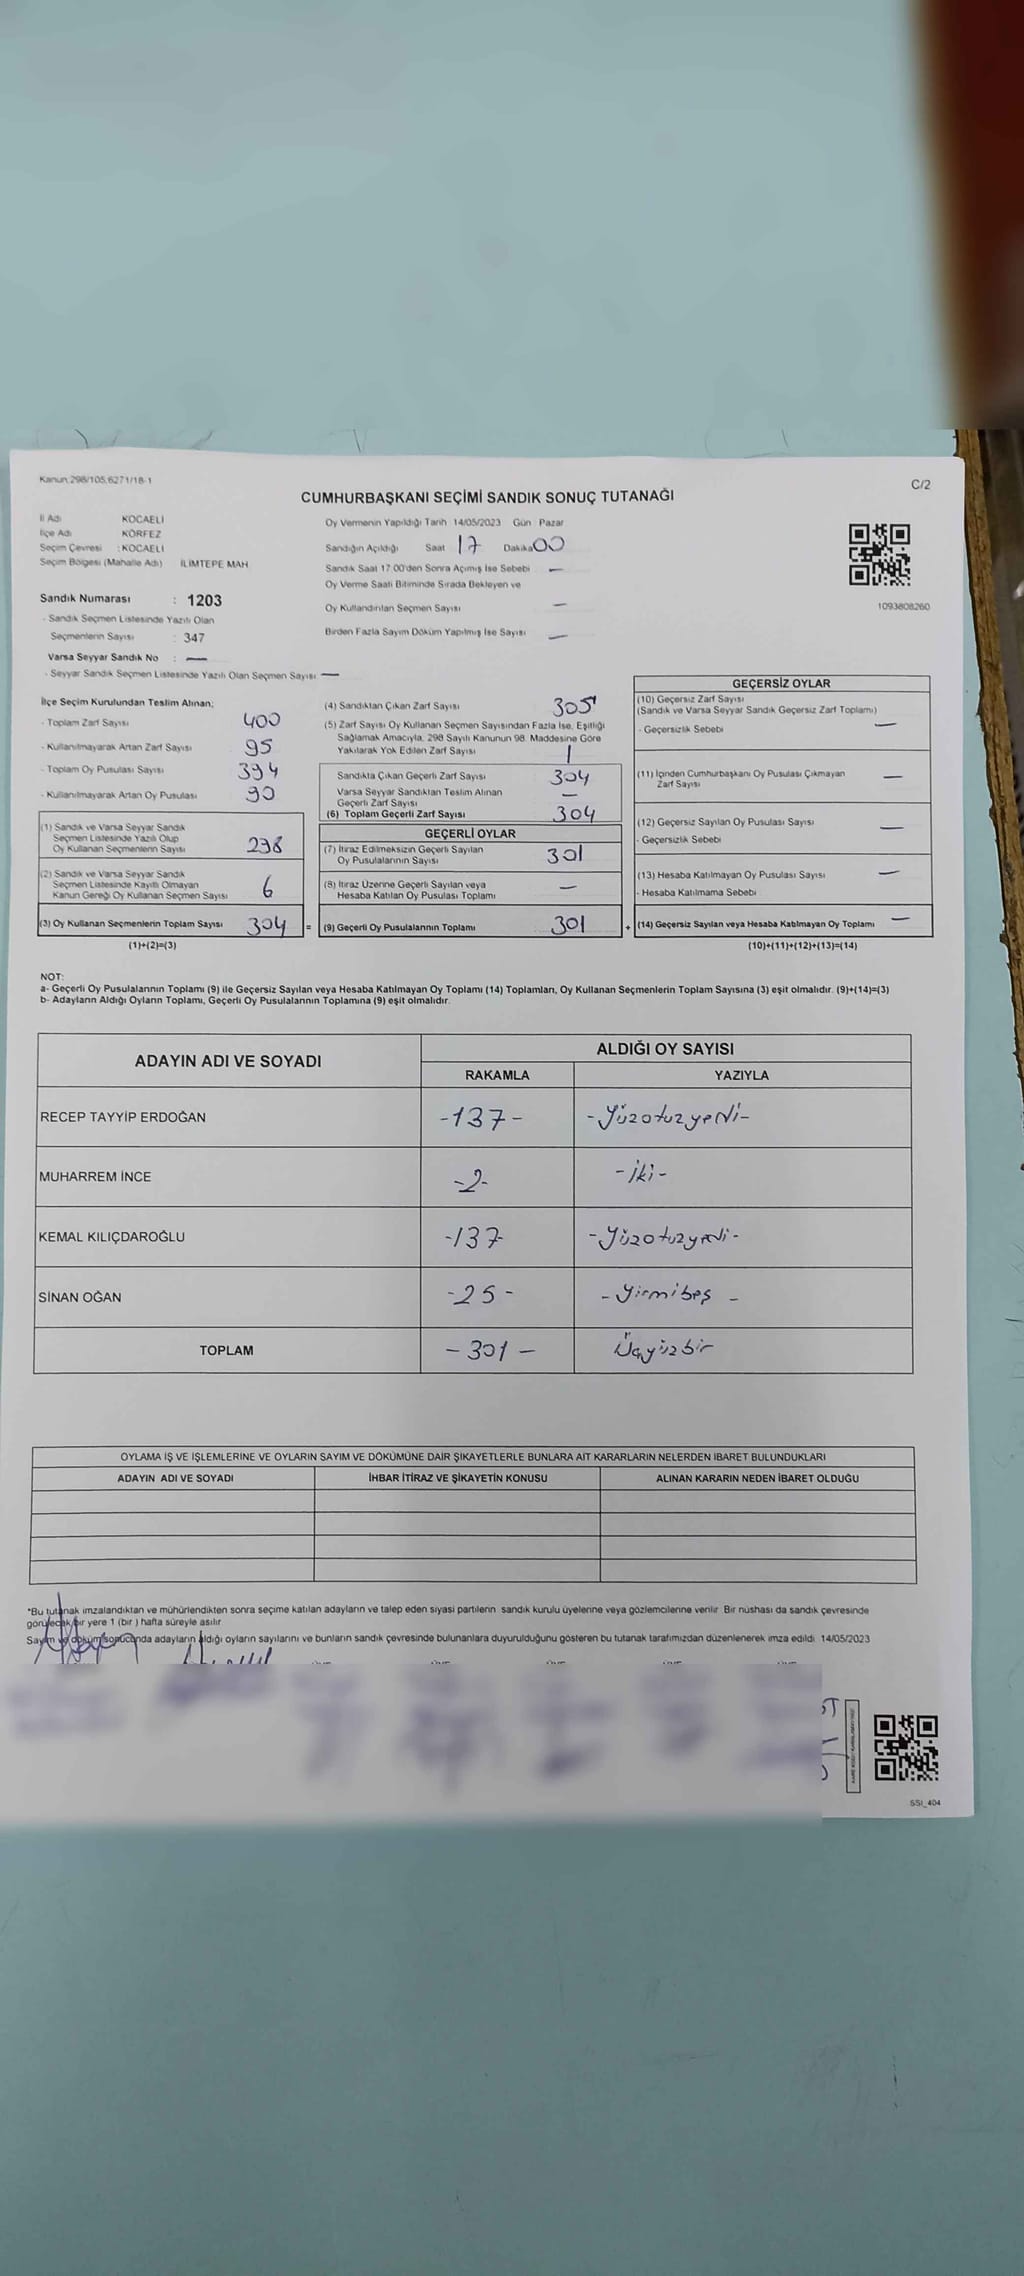 Kanun:298/105,6271/18-1
C/2
CUMHURBAŞKANI SEÇİMİ SANDIK SONUÇ TUTANAĞI
İl Adı KOCAELİ
İlçe Adı KÖRFEZ
Seçim Çevresi : KOCAELİ
Seçim Bölgesi (Mahalle Adı) İLİMTEPE MAH
Sandık Numarası : 1203
- Sandık Seçmen Listesinde Yazılı Olan
Seçmenlerin Sayısı : 347
Varsa Seyyar Sandık No : —
- Seyyar Sandık Seçmen Listesinde Yazılı Olan Seçmen Sayısı : —
Oy Vermenin Yapıldığı Tarih 14/05/2023 Gün Pazar
Sandığın Açıldığı Saat 17 Dakika 00
Sandık Saat 17:00'den Sonra Açımış İse Sebebi —
Oy Verme Saati Bitiminde Sırada Bekleyen ve
Oy Kullandırılan Seçmen Sayısı —
Birden Fazla Sayım Döküm Yapılmış İse Sayısı —
1093808260
İlçe Seçim Kurulundan Teslim Alınan;
- Toplam Zarf Sayısı 400
- Kullanılmayarak Artan Zarf Sayısı 95
- Toplam Oy Pusulası Sayısı 394
- Kullanılmayarak Artan Oy Pusulası 90
(1) Sandık ve Varsa Seyyar Sandık
Seçmen Listesinde Yazılı Olup
Oy Kullanan Seçmenlerin Sayısı 298
(2) Sandık ve Varsa Seyyar Sandık
Seçmen Listesinde Kayıtlı Olmayan
Kanun Gereği Oy Kullanan Seçmen Sayısı 6
(3) Oy Kullanan Seçmenlerin Toplam Sayısı 304 =
(1)+(2)=(3)
(4) Sandıktan Çıkan Zarf Sayısı 305
(5) Zarf Sayısı Oy Kullanan Seçmen Sayısından Fazla İse, Eşitliği
Sağlamak Amacıyla, 298 Sayılı Kanunun 98. Maddesine Göre
Yakılarak Yok Edilen Zarf Sayısı 1
Sandıkta Çıkan Geçerli Zarf Sayısı 304
Varsa Seyyar Sandıktan Teslim Alınan
Geçerli Zarf Sayısı —
(6) Toplam Geçerli Zarf Sayısı 304
GEÇERLİ OYLAR
(7) İtiraz Edilmeksizin Geçerli Sayılan
Oy Pusulalarının Sayısı 301
(8) İtiraz Üzerine Geçerli Sayılan veya
Hesaba Katılan Oy Pusulası Toplamı —
(9) Geçerli Oy Pusulalarının Toplamı 301 +
GEÇERSİZ OYLAR
(10) Geçersiz Zarf Sayısı
(Sandık ve Varsa Seyyar Sandık Geçersiz Zarf Toplamı)
- Geçersizlik Sebebi —
(11) İçinden Cumhurbaşkanı Oy Pusulası Çıkmayan
Zarf Sayısı —
(12) Geçersiz Sayılan Oy Pusulası Sayısı —
- Geçersizlik Sebebi
(13) Hesaba Katılmayan Oy Pusulası Sayısı —
- Hesaba Katılmama Sebebi
(14) Geçersiz Sayılan veya Hesaba Katılmayan Oy Toplamı —
(10)+(11)+(12)+(13)=(14)
NOT:
a- Geçerli Oy Pusulalarının Toplamı (9) ile Geçersiz Sayılan veya Hesaba Katılmayan Oy Toplamı (14) Toplamları, Oy Kullanan Seçmenlerin Toplam Sayısına (3) eşit olmalıdır. (9)+(14)=(3)
b- Adayların Aldığı Oyların Toplamı, Geçerli Oy Pusulalarının Toplamına (9) eşit olmalıdır.
ADAYIN ADI VE SOYADI
ALDIĞI OY SAYISI
RAKAMLA YAZIYLA
RECEP TAYYİP ERDOĞAN -137- -Yüzotuzyedi-
MUHARREM İNCE -2- -İki-
KEMAL KILIÇDAROĞLU -137- -Yüzotuzyedi-
SİNAN OĞAN -25- -Yirmibeş-
TOPLAM -301- Üçyüzbir
OYLAMA İŞ VE İŞLEMLERİNE VE OYLARIN SAYIM VE DÖKÜMÜNE DAİR ŞİKAYETLERLE BUNLARA AİT KARARLARIN NELERDEN İBARET BULUNDUKLARI
ADAYIN ADI VE SOYADI İHBAR İTİRAZ VE ŞİKAYETİN KONUSU ALINAN KARARIN NEDEN İBARET OLDUĞU
*Bu tutanak imzalandıktan ve mühürlendikten sonra seçime katılan adayların ve talep eden siyasi partilerin sandık kurulu üyelerine veya gözlemcilerine verilir. Bir nüshası da sandık çevresinde
görülecek bir yere 1 (bir) hafta süreyle asılır
Sayım ve döküm sonucunda adayların aldığı oyların sayılarını ve bunların sandık çevresinde bulunanlara duyurulduğunu gösteren bu tutanak tarafımızdan düzenlenerek imza edildi 14/05/2023
SSI_404